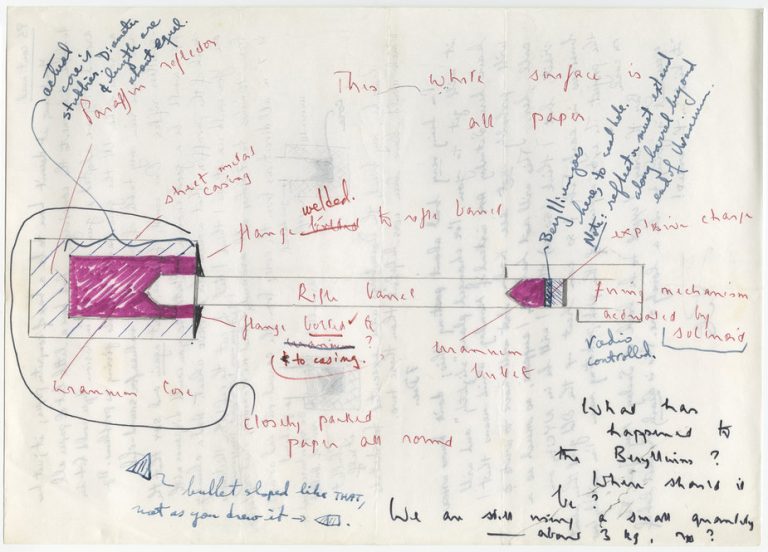 actual
core is
stubbier. Diameter
& length are
about equal.
Paraffin reflector
This white surface is
all paper
sheet metal
casing
welded.
flange bolted to rifle barrel
Beryllium goes
here, to seal hole.
Note: reflector must extend
along barrel beyond
end of Uranium.
explosive charge
Rifle barrel
firing mechanism
actuated by
solenoid
radio
controlled.
flange bolted to
uranium ?
& to casing.
uranium
bullet
uranium core
closely packed
paper all round
bullet shaped like THAT,
not as you drew it →
What has
happened to
the Beryllium ?
Where should it
be ?
We are still using a small quantity
about 3 kg,